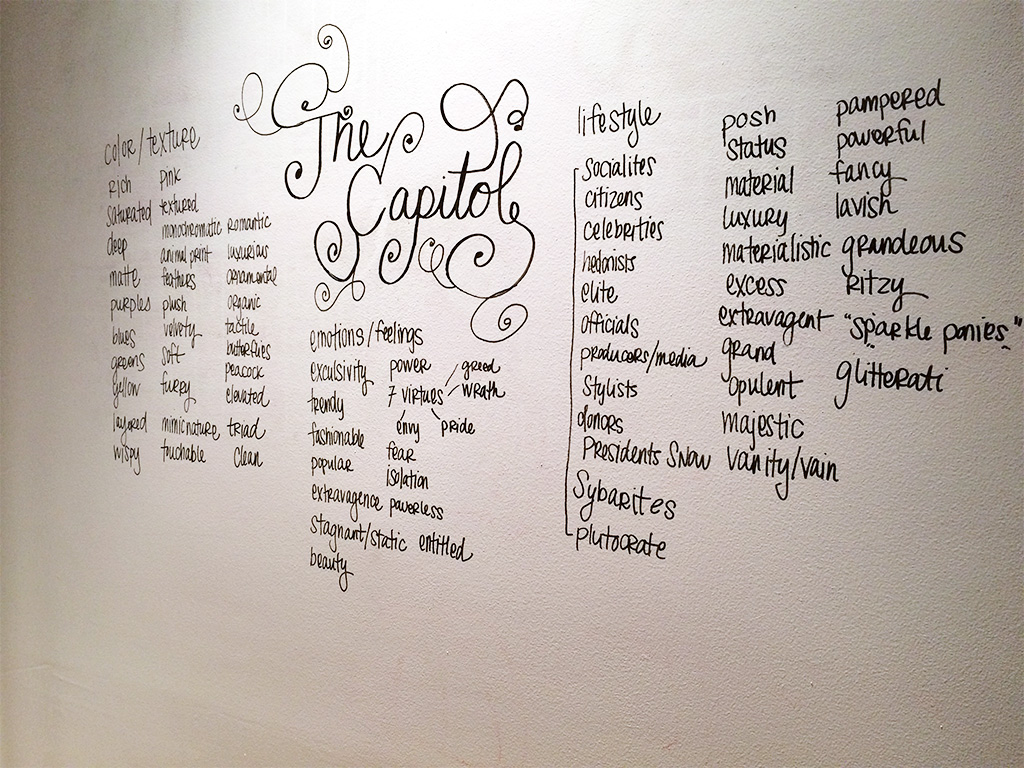 The
Capitol
color/texture
rich
saturated
deep
matte
purples
blues
greens
yellow
layered
wispy
pink
textured
monochromatic
animal print
feathers
plush
velvety
soft
furry
mimic nature
touchable
romantic
luxurius
ornamental
organic
tactile
butterflies
peacock
elevated
triad
clean
emotions/feelings
exculsivity
trendy
fashionable
popular
extravagence
stagnant/static
beauty
power
7 virtues
greed
wrath
envy
pride
fear
isolation
powerless
entitled
lifestyle
socialites
citizens
celeberties
hedonists
elite
officials
producers/media
stylists
donors
Presidents Snow
Sybarites
plutocrate
posh
status
material
luxury
materialistic
excess
extravagent
grand
opulent
majestic
vanity/vain
pampered
powerful
fancy
lavish
grandeous
Ritzy
"sparkle ponies"
glitterati